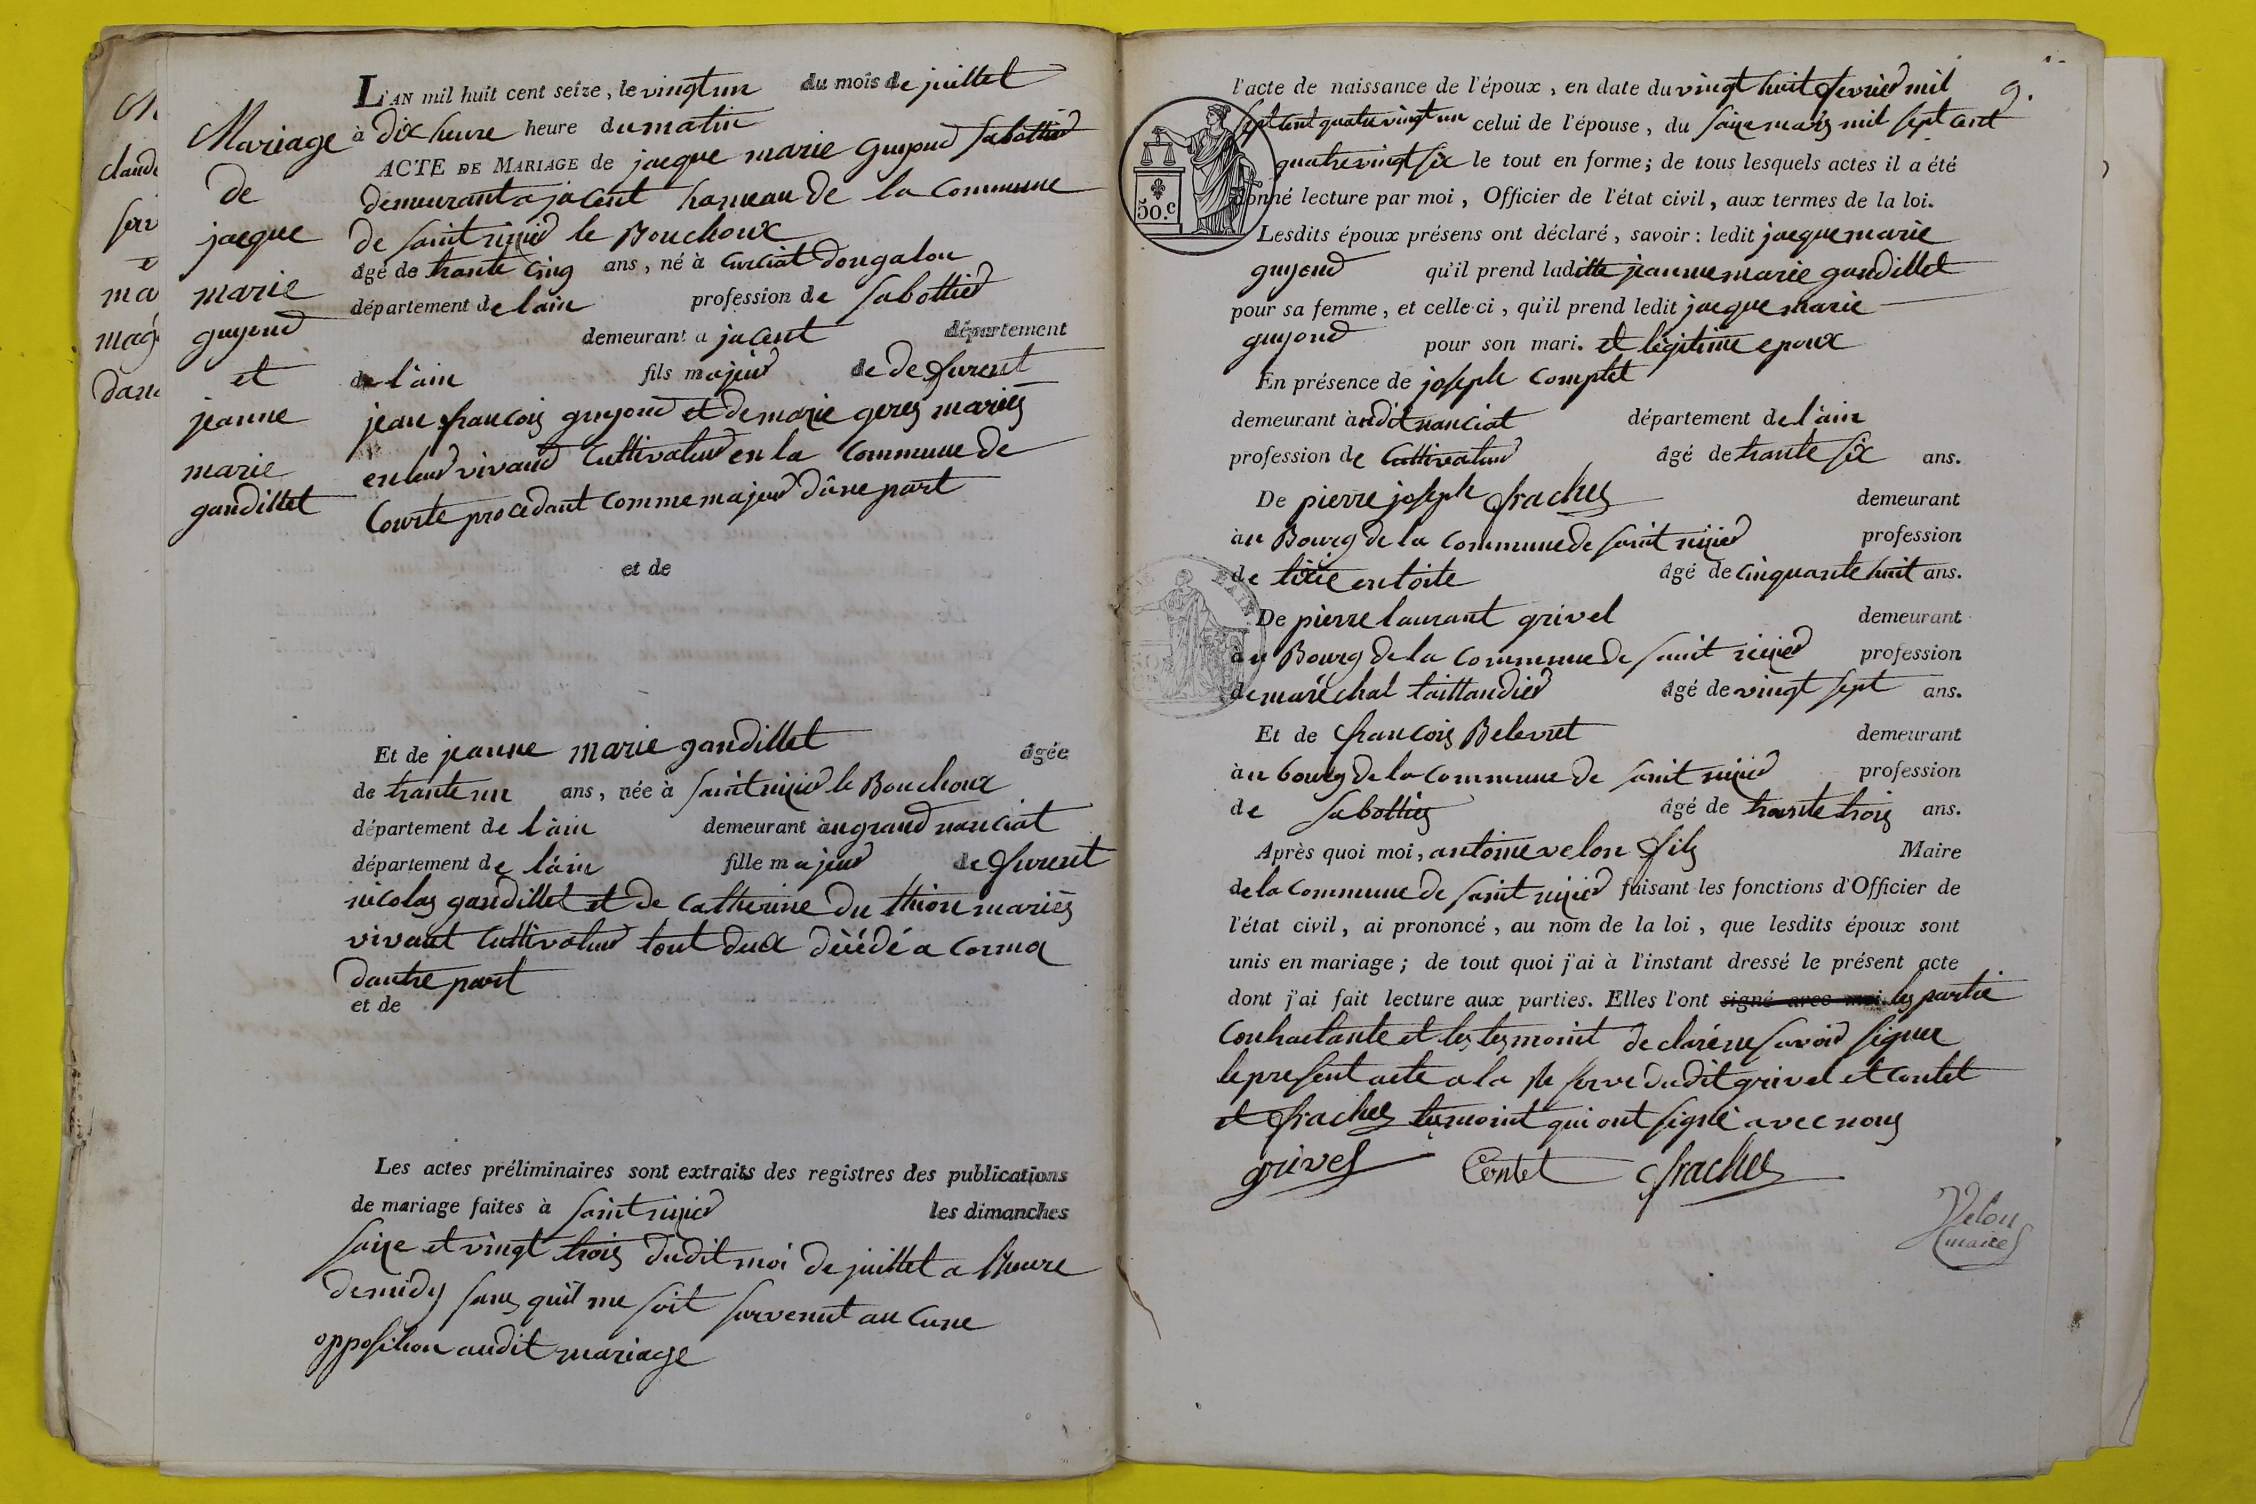 Mariage
de
jacque
marie
guyond
et
jeanne
marie
gandillet
L'AN mil huit cent seize, le vingt un du mois de juillet
à dix heure heure du matin
ACTE DE MARIAGE de jacque marie guyond sabottier
demeurant a jacent hameau de la commune
de saint nizier le Bouchoux
agé de trante cinq ans, né à curciat dongalon
département de lain profession de sabottier
demeurant a jacent département
de lain fils majeur de defurent
jean francois guyond et de marie geres mariés
en leur vivand cultivateur en la commune de
Courte procedant comme majeur dûne part
et de
Et de jeanne marie gandillet agée
de trante un ans, née à saint nizier le Bouchoux
département de lain demeurant au grand nanciat
département de lain fille majeur de furent
nicolas gandillet et de catherine du thion mariés
vivant cultivateur tout deux décédé a corma
dautre part
et de
Les actes préliminaires sont extraits des registres des publications
de mariage faites à saint nizier les dimanches
saize et vingt trois dudit moi de juillet a lheure
de midy sans quil me soit survenut aucune
opposition audit mariage
9.
l'acte de naissance de l'époux, en date du vingt huit fevrier mil
sept cent quatre vingt un celui de l'épouse, du saize mars mil sept cent
quatre vingt six le tout en forme; de tous lesquels actes il a été
donné lecture par moi, Officier de l'état civil, aux termes de la loi.
50.c
Lesdits époux présens ont déclaré, savoir: ledit jacque marie
guyond qu'il prend laditte jeanne marie gandillet
pour sa femme, et celle-ci, qu'il prend ledit jacque marie
guyond pour son mari. et légitime epoux
En présence de joseph comptet
demeurant audit nanciat département de lain
profession de cultivateur âgé de trante six ans.
De pierre joseph frachet demeurant
au Bourg de la commune de saint nizier profession
de en toite âgé de cinquante huit ans.
De pierre laurant grivel demeurant
au Bourg de la commune de saint nizier profession
de maréchal taillandier âgé de vingt sept ans.
Et de francois Belevret demeurant
au bourg de la commune de saint nizier profession
de sabottier âgé de trante trois ans.
Après quoi moi, antoine velon fils Maire
de la commune de saint nizier faisant les fonctions d'Officier de
l'état civil, ai prononcé, au nom de la loi, que lesdits époux sont
unis en mariage; de tout quoi j'ai à l'instant dressé le présent acte
dont j'ai fait lecture aux parties. Elles l'ont signé avec moi. les partie
contractante et les tesmoint declaré ne savoir signer
le present acte a la re serve dudit grivel et contet
et frachet temoint qui ont signé avec nous
grivel Contet frachet
Velon
maire